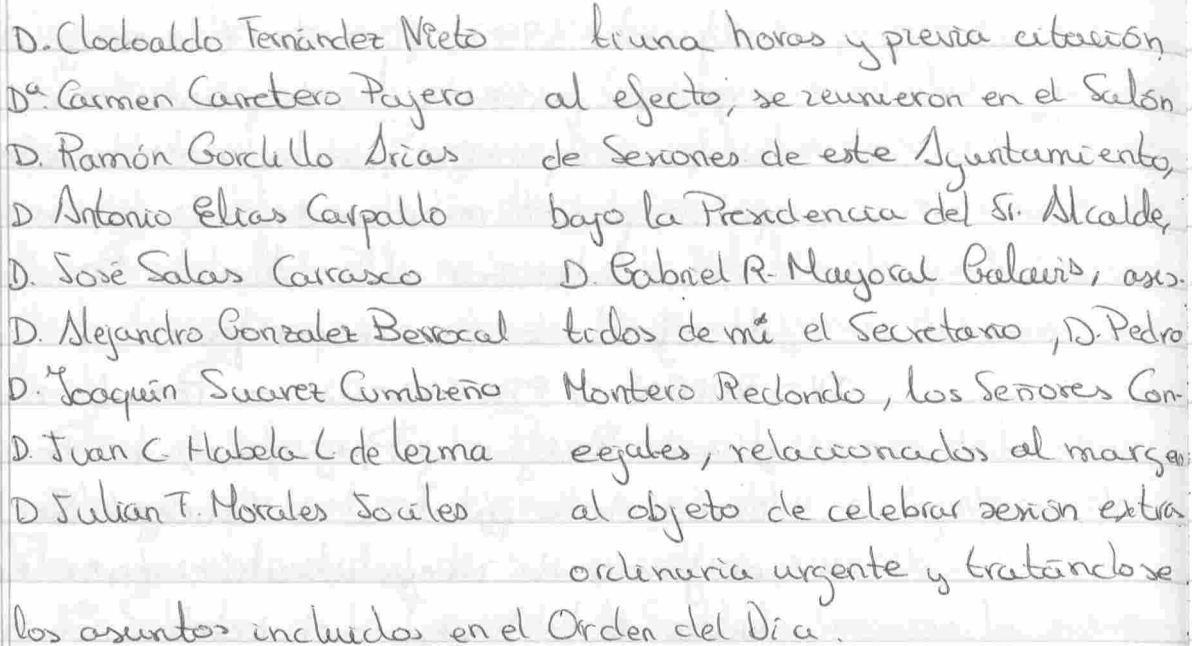 D. Clodoaldo Fernández Nieto
Dª. Carmen Carretero Pajero
D. Ramón Gordillo Arias
D Antonio Elias Carpallo
D. José Salas Carrasco
D. Alejandro Gonzalez Berrocal
D. Joaquin Suarez Cumbreño
D. Juan C. Habela L de lerma
D Julian T. Morales Jociles
tiuna horas y previa citación
al efecto, se reunieron en el Salón
de Sesiones de este Ayuntamiento,
bajo la Presidencia del Sr. Alcalde,
D. Gabriel R. Mayoral Galavis, asis-
tidos de mi el Secretario, D. Pedro
Montero Redondo, los Señores Con-
cejales, relacionados al margen
al objeto de celebrar sesión extra
ordinaria urgente y tratándose
los asuntos incluidos en el Orden del Día.